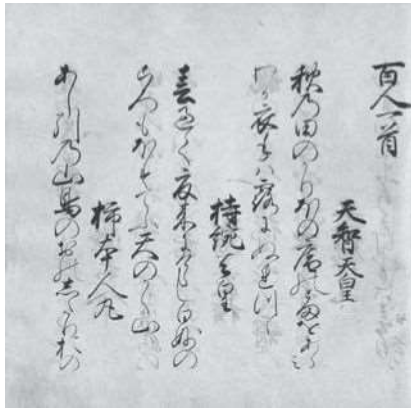 百人一首
天智天皇
秋乃田のかりほの庵の苫をあらみ
わか衣手ハ露にぬれつゝ
持統天皇
春過て夏来にけらし白妙の
ころもほすてふ天のかく山
柿本人丸
あし引乃山鳥のおのしたりおの